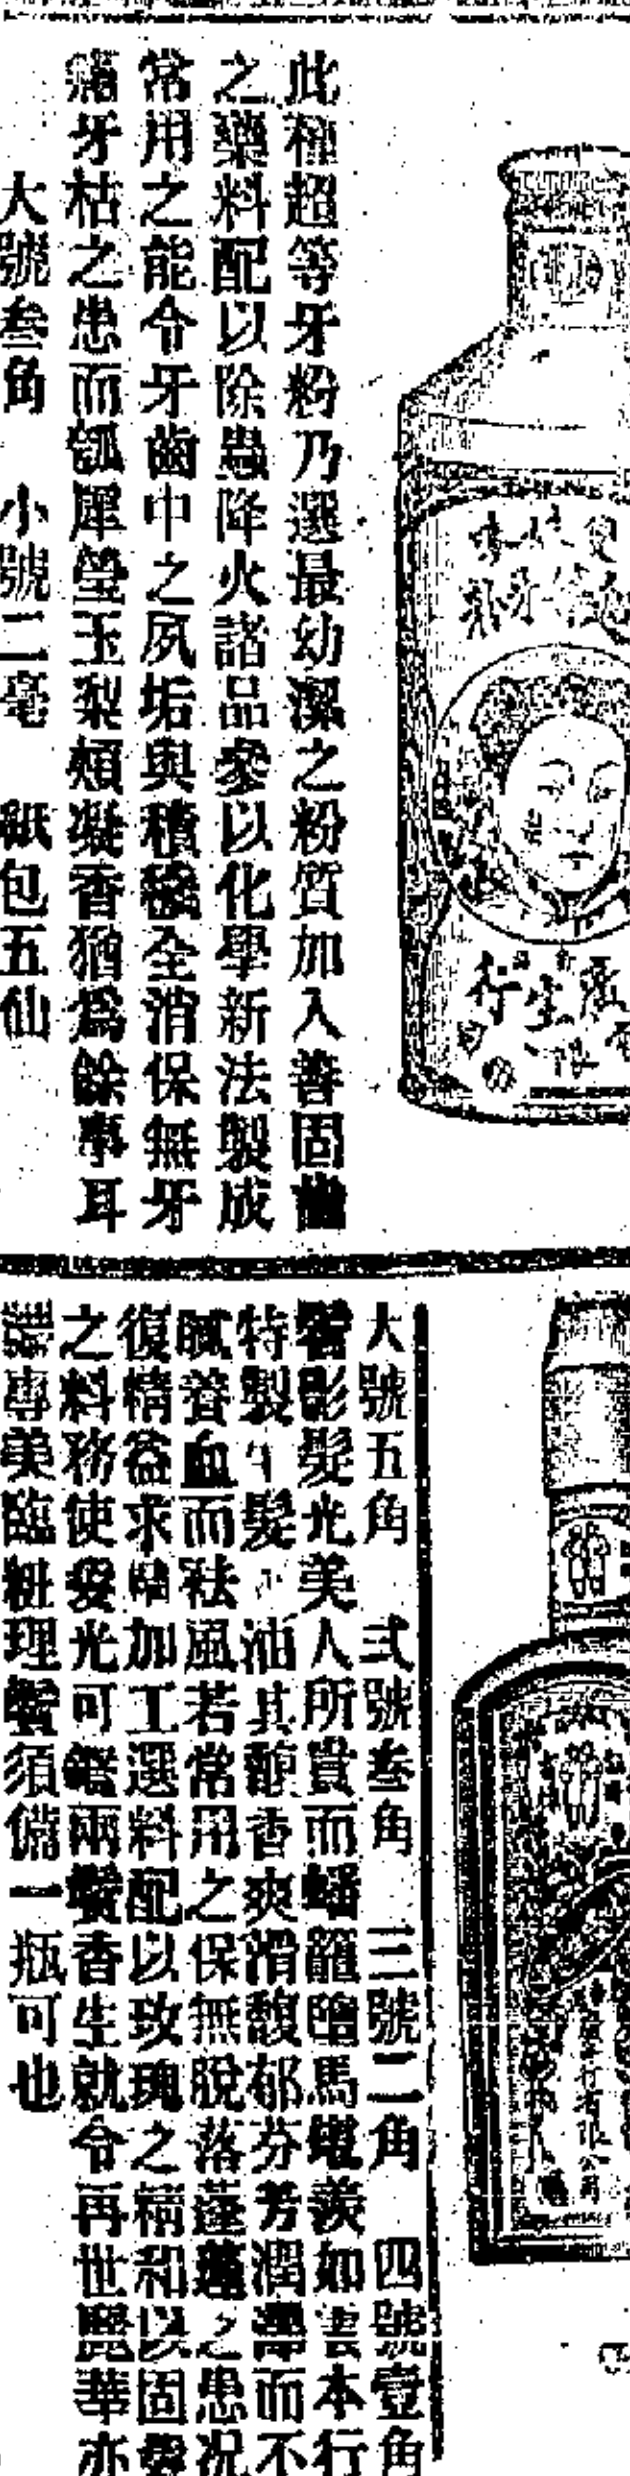 此種超等牙粉乃選最幼潔之粉質加入善固齒
之藥料配以除蟲降火諸品參以化學新法製成
常用之能令牙齒中之夙垢與積穢全消保無牙
痛牙枯之患而瓠犀瑩玉梨頰凝香猶為餘事耳
大號叁角 小號二毫 紙包五仙
行
大號五角 弍號叁角 三號二角 四號壹角
鬢影髮光美人所貴而蟠龍墮馬堪羨如雲本行
特製生髮油其靜香爽滑馥郁芬芳潤澤而不
膩養血而祛風若常用之保無脫落蓬之患况
復精益求精加工選料配以玫瑰之精和以固髮
之料務使髮光可鑑兩鬢香生就令再世麗華亦
專美臨粧理鬢須備一瓶可也